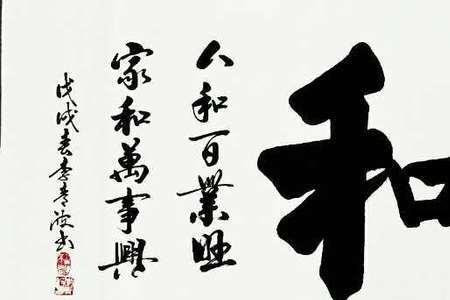 和
人和百業旺
家和萬事興
戊戌春李波书